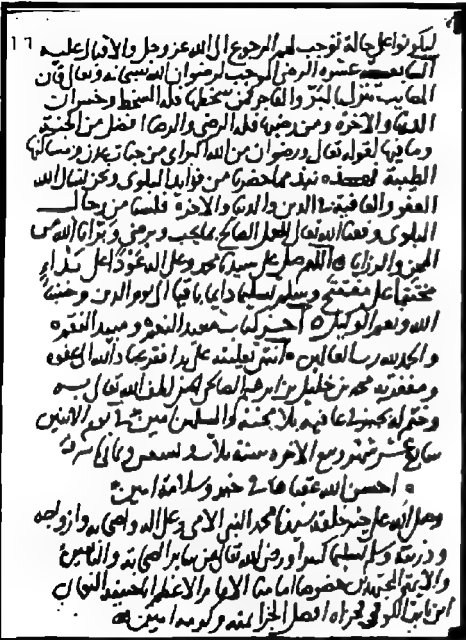 ليكونوا على حالة توجب لهم الرجوع الى الله عز وجل والاقبال عليه
١٦
السابعة عشره الرضى الموجب لرضوان الله سبحانه وتعالى فان
المصايب تنزل بالبر والفاجر فمن سخطها فله السخط وخسران
الدنيا والاخره ومن رضيها فله الرضى والرضا افضل من الجنة
وما فيها لقوله تعالى ورضوان من الله اكبر اى من جنات عدن ومساكنها
الطيبة فهذه نبذة مما حضرنا من فوايد البلوى ونحن نسال الله
العفو والعافية فى الدين والدنيا والاخره فلسنا من رجال
البلوى وفقنا الله تعالى للعمل الصالح بما يحب ويرضى وبرانا الله من
المحن والرزايا اللهم صل على سيدنا محمد وعلى اله عودا على
مختتما على مفتتح وسلم تسليما دايما باقيا الى يوم الدين وحسبنا
الله ونعم الوكيل اخر كتاب مفيد النعم ومبيد النقم
والحمد لله رب العالمين انتهى تعليقه على يد افقر عباد الله الى عفوه
ومغفرته محمد بن خليل بن ابرهيم الصالحى الحنفى لطف الله تعالى به
وختم له بخير فى عافيه بلا محنة والمسلمين امين فى يوم الاثنين
سابع عشر شهر ربيع الاخر سنة ثلاث وتسعين وثمانى مايه
احسن الله عقباها فى خير وسلامة امين
وصلى الله على خير خلقه سيدنا محمد النبى الامى وعلى اله واصحابه وازواجه
وذريته وسلم تسليما كثيرا ورضى الله تعالى عن ساير الصحابه والتابعين
والايمة المجتهدين خصوصا امامنا الامام الاعظم ابى حنيفة النعمان
ابن ثابت الكوفى فجزاه افضل الجزا بمنه وكرمه امين